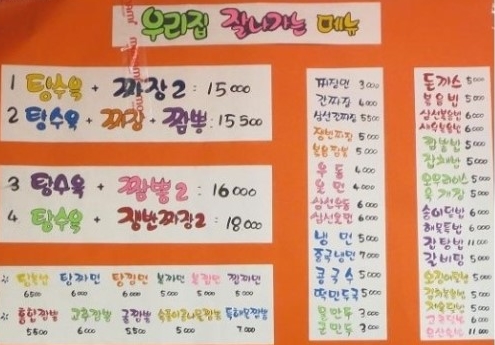 우리집 잘나가는 메뉴
1 탕수육 + 짜장2 : 15000
2 탕수육 + 짜장 + 짬뽕 : 15500
3 탕수육 + 짬뽕2 : 16000
4 탕수육 + 쟁반짜장2 : 18000
탕볶밥 탕짜면 탕짬면 볶짜면 볶짬면 짬짜면
6500 6000 6000 5000 5000 5000
홍합짬뽕 고추짬뽕 굴짬뽕
5500 6000 5500 5000 7000
짜장면 3000
간짜장 4000
삼선간짜장 5500
쟁반짜장 5000
볶음짬뽕 5000
우동 4000
울면 4000
삼선우동 6000
삼선울면 6000
냉면 5000
중국냉면 7000
콩국수 5000
떡만두국 5000
물만두 3000
군만두 3000
돈까스 5000
볶음밥 5000
삼선볶음밥 6000
새우볶음밥 6000
짬뽕밥 5000
잡채밥 5000
오므라이스 5000
육개장 5000
송이덮밥 6000
해물덮밥 6000
잡탕밥 11000
갈비탕 5000
오징어덮밥 5000
김치볶음밥 5000
제육덮밥 5000
고추덮밥 6000
유산슬밥 11000